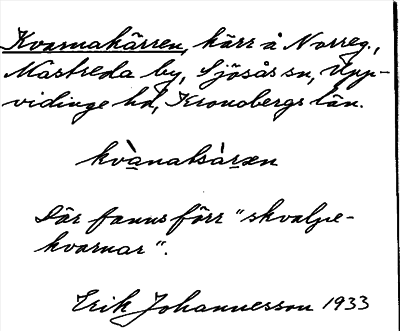 Kvarnakärren, kärr å Norreg.,
Mastreda by, Sjösås sn, Upp-
vidinge hd, Kronobergs län.
kvànatsàræn
Där fanns förr "skvalpe-
kvarnar".
Erik Johannesson 1933